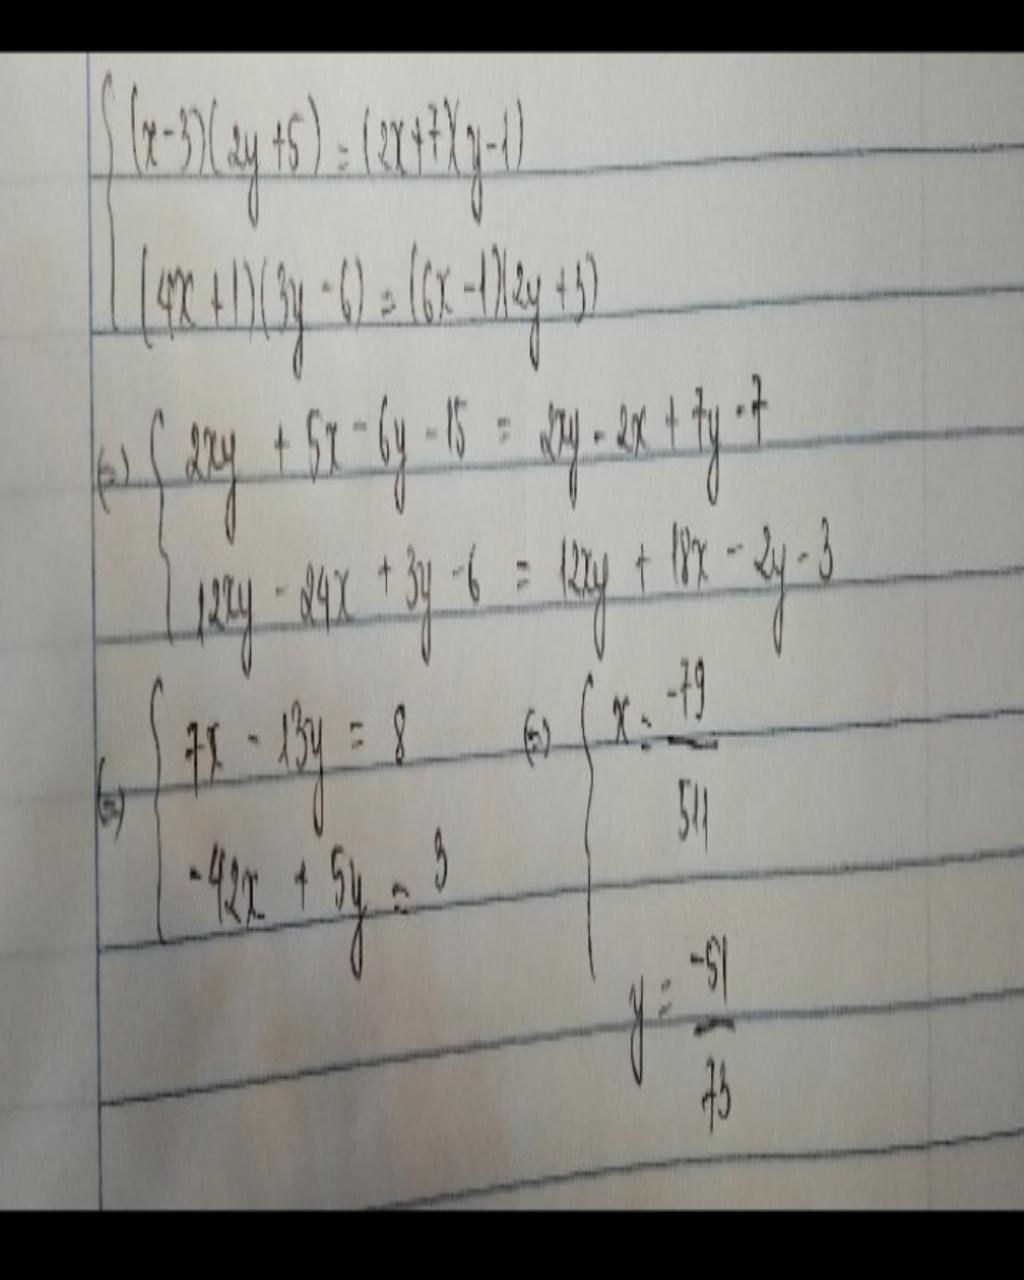 (x-3)(2y+5) = (2x+7)(y-1)
(4x+1)(3y-6) = (6x-1)(2y+3)
(=) 2xy + 5x - 6y - 15 = 2xy - 2x + 7y - 7
12xy - 24x + 3y - 6 = 12xy + 18x - 2y - 3
(=) { 7x - 13y = 8 (=) { x = -79/511
-42x + 5y = 3
y = -51/73